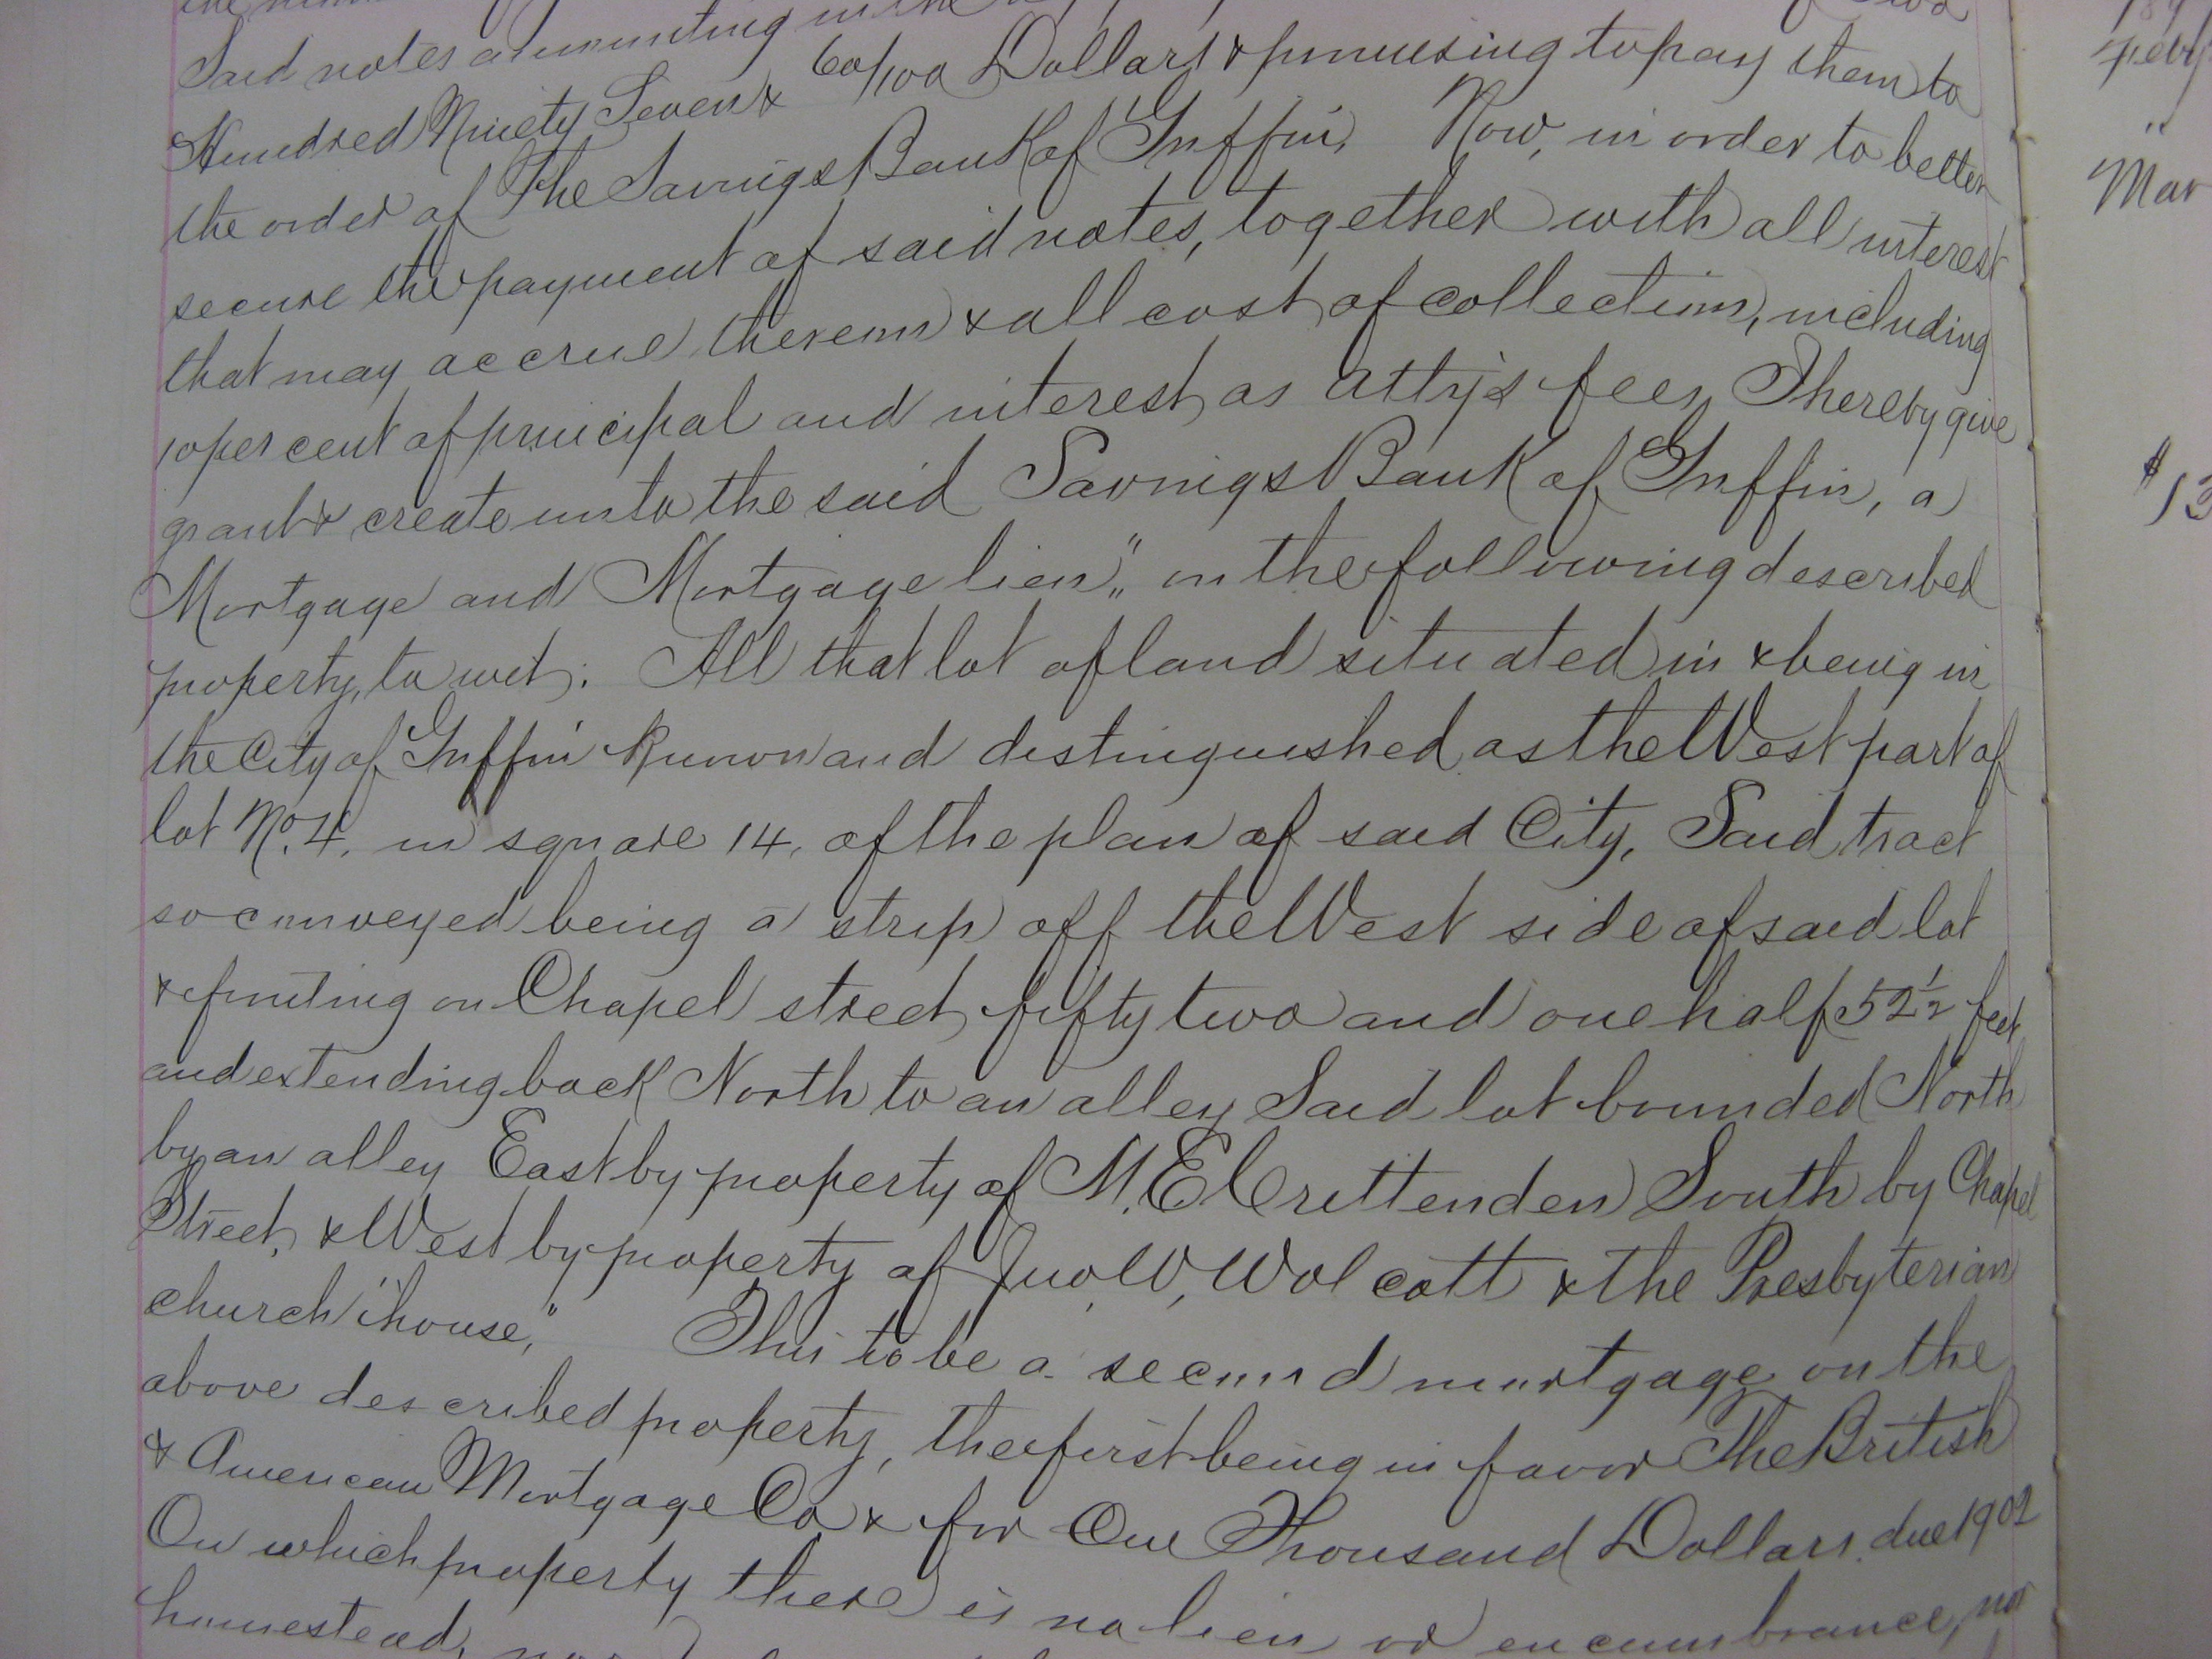 Said notes amounting in the
Hundred Ninety Seven & 60/100 Dollars & promising to pay them to
the order of The Savings Bank of Griffin, Now, in order to better
secure the payment of said notes, together with all interest
that may accrue thereon & all cost of collection, including
10 per cent of principal and interest as atty's fees, I hereby give
grant & create unto the said Savings Bank of Griffin, a
Mortgage and "Mortgage lien", on the following described
property, to wit: All that lot of land situated in & being in
the City of Griffin Known and distinguished as the West part of
lot No. 4, in square 14, of the plan of said City, Said tract
so conveyed being a strip off the West side of said lot
& fronting on Chapel street, fifty two and one half 52 1/2 feet
and extending back North to an alley Said lot bounded North
by an alley East by property of M. E Crittenden South by Chapel
Street, & West by property of Jno. W, Wolcott & the Presbyterian
church "house," This to be a second mortgage on the
above described property, the first being in favor The British
& American Mortgage Co & for One Thousand Dollars. due 1902
On which property there is no lien or encumbrance, nor
homestead, nor
Mar
$13